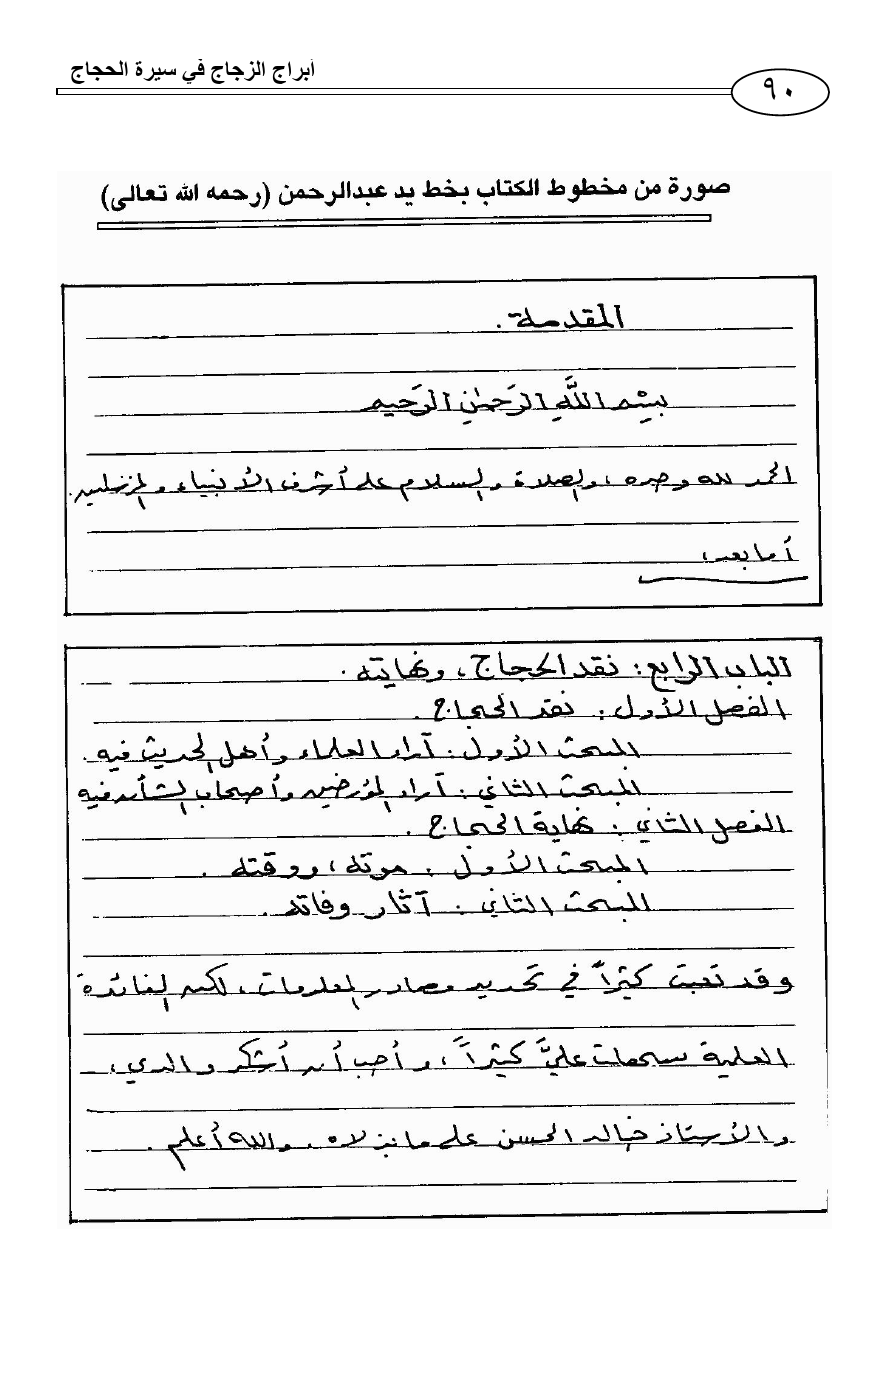 أبراج الزجاج في سيرة الحجاج
٩٠
صورة من مخطوط الكتاب بخط يد عبدالرحمن (رحمه الله تعالى)
المقدمة.
بِسْمِ اللَّهِ الرَّحَمٰنِ الرَّحَيم
الحمد لله وحده، والصلاة والسلام على أشرف الأنبياء والمرسلين.
أما بعد،
الباب الرابع: نقد الحجاج، ونهايته.
الفصل الأول: نقد الحجاج.
المبحث الأول: آراء العلماء وأهل الحديث فيه.
المبحث الثاني: آراء المؤرخين وأصحاب الشأن فيه
الفصل الثاني: نهاية الحجاج.
المبحث الأول: موته، ووقته.
المبحث الثاني: آثار وفاته.
وقد تعبت كثيراً في تحديد مصادر المعلومات، لكن الفائدة
العلمية سهلت عليَّ كثيراً، وأحب أن أشكر والدي،
والأستاذ خالد الحسن على ما بذلاه. والله أعلم.